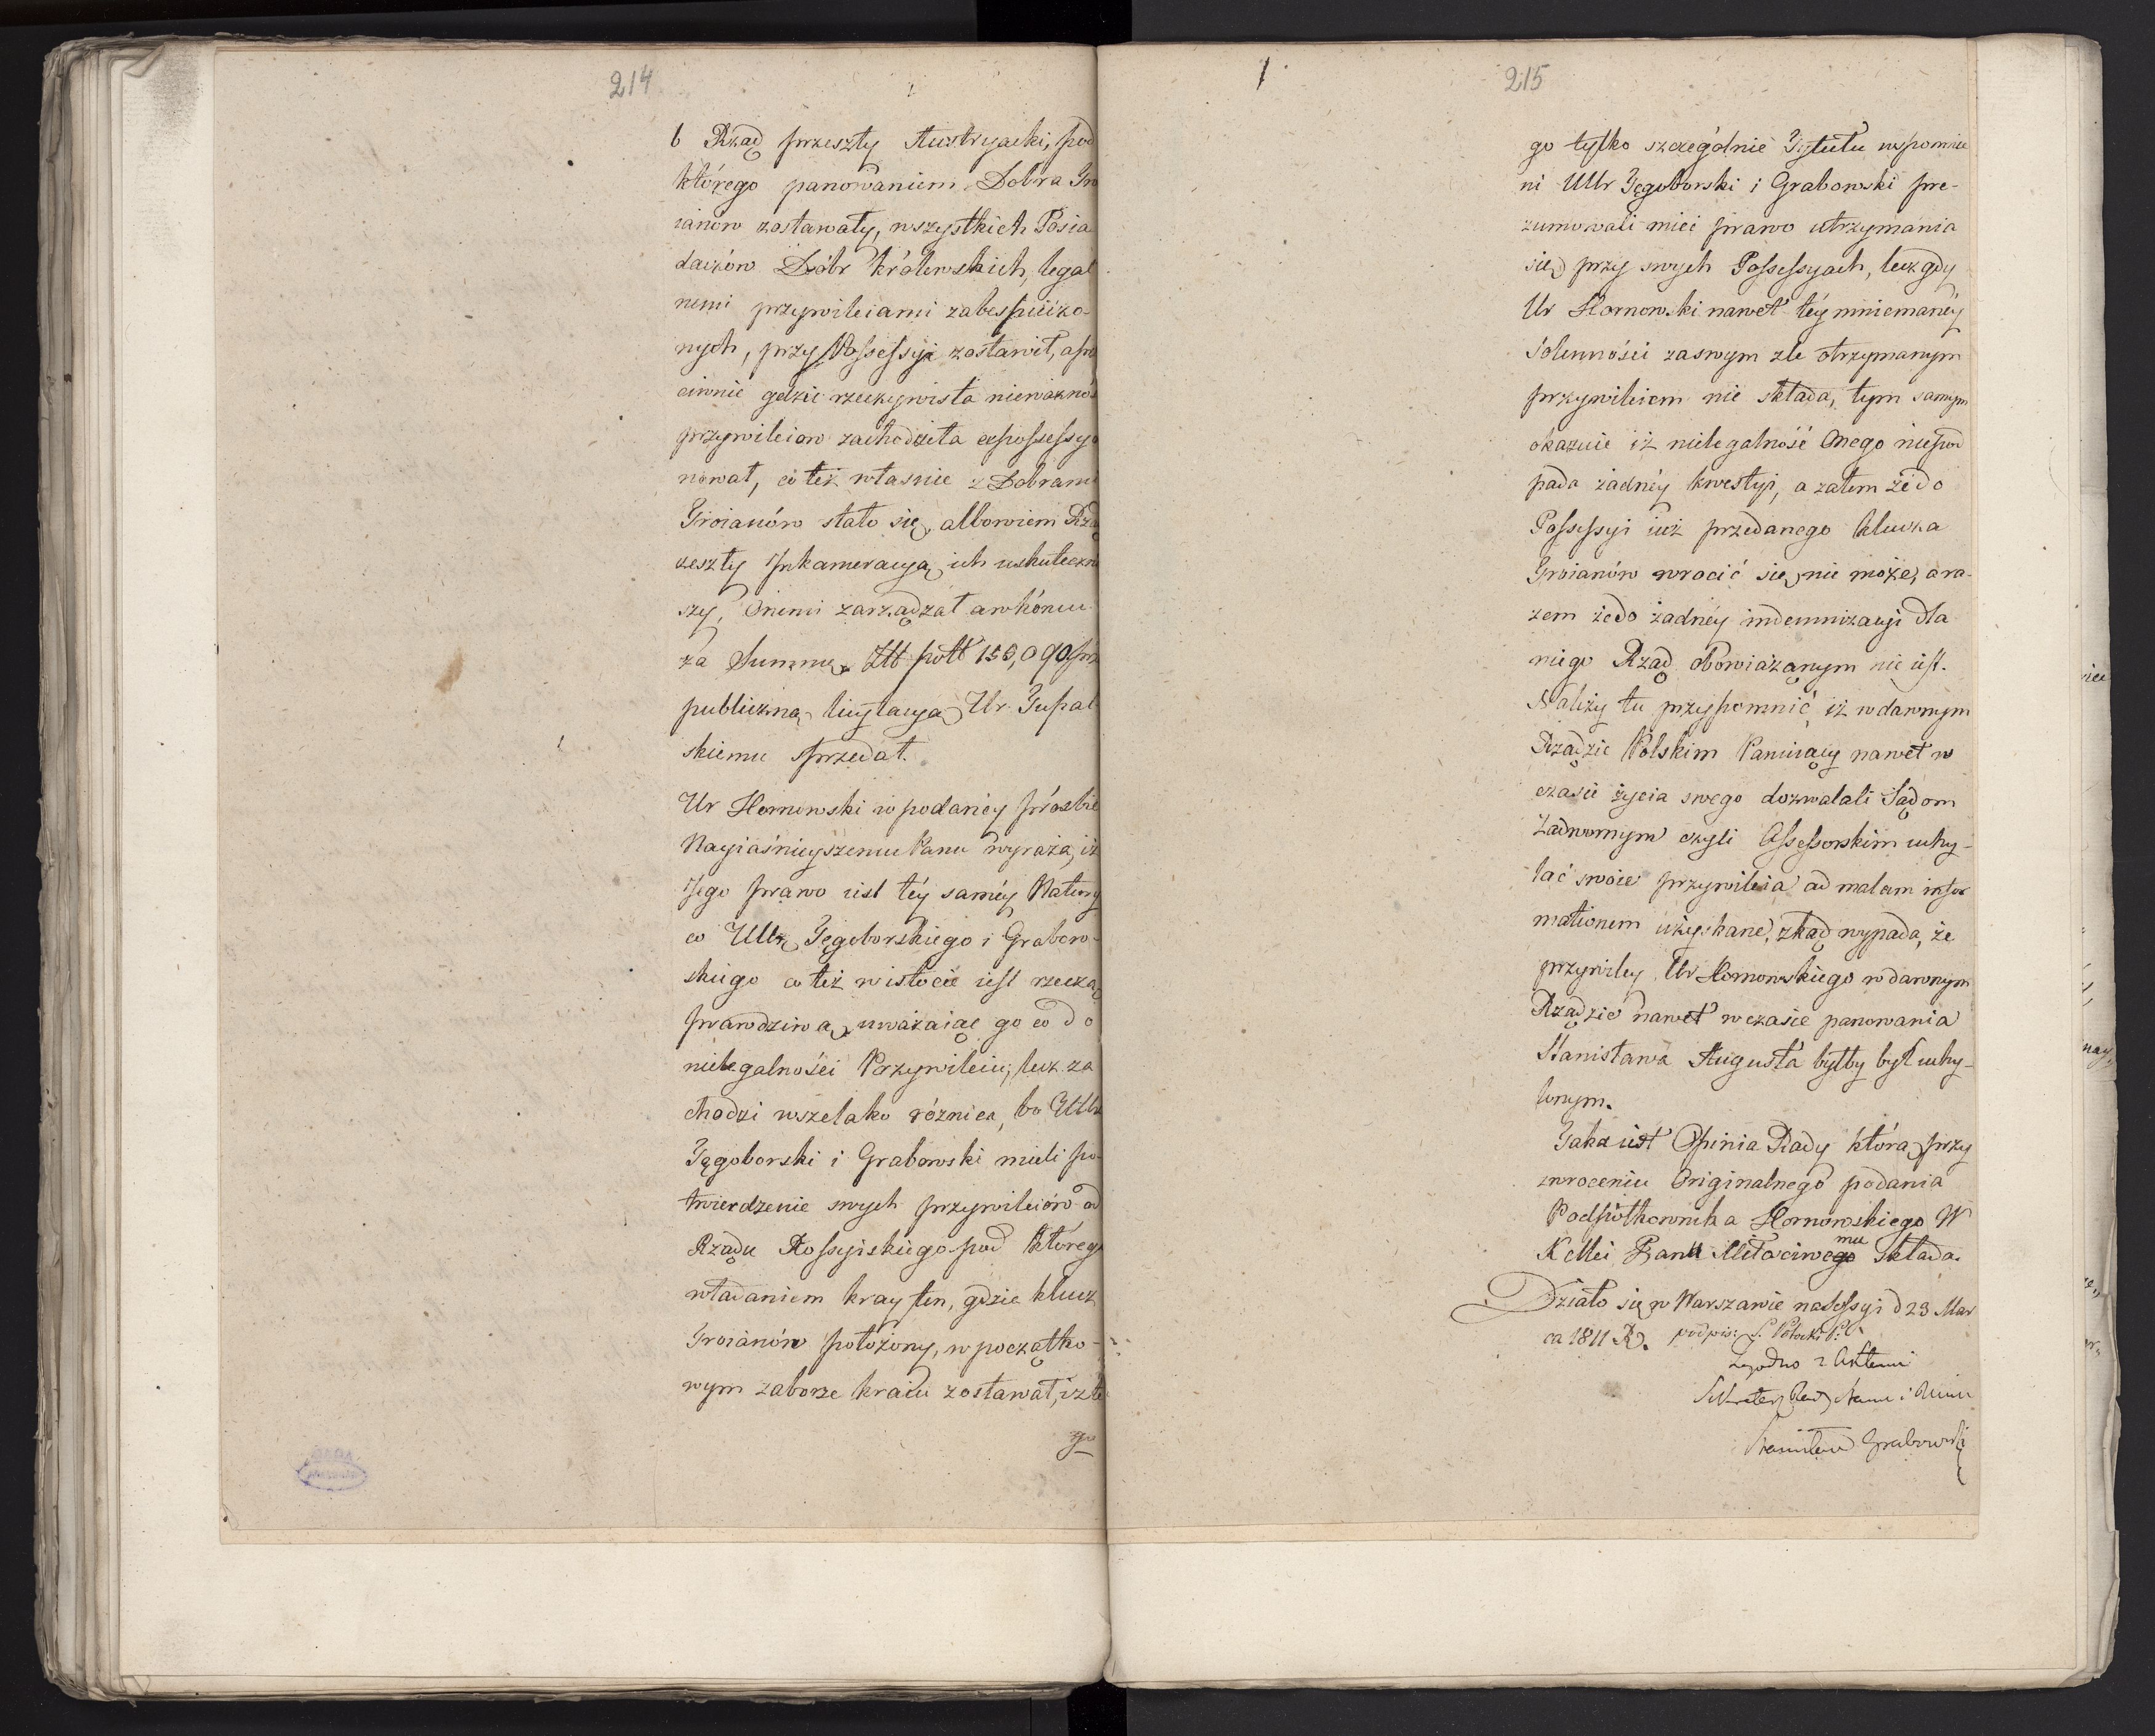 214
6 Rząd przeszły Austryacki, pod
którego panowaniem Dobra Gro
ianów zostawały, wszystkich Posia
daczów Dóbr królewskich, legal
nemi przywileiami zabespieczo-
nych, przy Possessyi zostawił, a prze
ciwnie gdzie rzeczywista nieważnoś
przywileiow zachodziła expossessyo
nował, co też własnie z Dobrami
Groianów stało się, albowiem Rząd
zeszły Inkameracyą ich uskuteczni
szy, Onemi zarządzał a w końcu
za Summę Złł poll 150,090 prz
publiczną licytacyą Ur. Jupal
skiemu sprzedał.
Ur Hornowski w podaney prośbie
Nayiaśnieyszemu Panu wyraża, iż
Jego prawo iest téy saméy Natury
co UUr Tęgoborskiego i Grabow-
skiego co też w istocie iest rzeczą
prawdziwą, uważaiąc go co do
nielegalności Przywileiu, lecz za
chodzi wszelako różnica, bo UUr
Tęgoborski i Grabowski mieli po-
twierdzenie swych przywileiów od
Rządu Rossyiskiego pod którego
władaniem kray ten, gdzie klucz
Groianów położony, w początko-
wym zaborze kraiu zostawał, i z te
go
215
go tylko szczególnie Tytułu wspomnie
ni UUr Tęgoborski i Grabowski pre-
zumowali mieć prawo utrzymania
się przy swych Possessyach, lecz gdy
Ur Hornowski nawet téy mniemanéy
solenności za swym zle otrzymanym
przywileiem nie składa, tym samym
okazuie iż nielegalność Onego niepod
pada żadnéy kwestyi, a zatem że do
Possessyi iuż przedanego klucza
Groianów wrocić się nie może, a ra-
zem że do żadnéy indemnizacyi dla
niego Rząd obowiązanym nie iest.
Należy tu przypomnić, iż w dawnym
Rządzie Polskim Panuiący nawet w
czasie życia swego dozwalali Sądom
Zadwornym czyli Assessorskim uchy-
lać swoie przywileia ad malam infor
mationem użyskane, zkąd wypada, że
przywiley Ur Hornowskiego w dawnym
Rządzie nawet w czasie panowania
Stanisława Augusta byłby był uchy-
lonym.
Jaka iest Opinia Rady którą przy
zwroceniu Originalnego podania
Podpółkownika Hornowskiego W
K Mci Panu Miłościwegomu składa.
Działo się w Warszawie na Sessyi d 23 Mar
ca 1811 R. podpis: S. Potocki P.
Zgodno z Aktami
Sekretarz Rady Stanu i Minis
Stanisław Grabowski